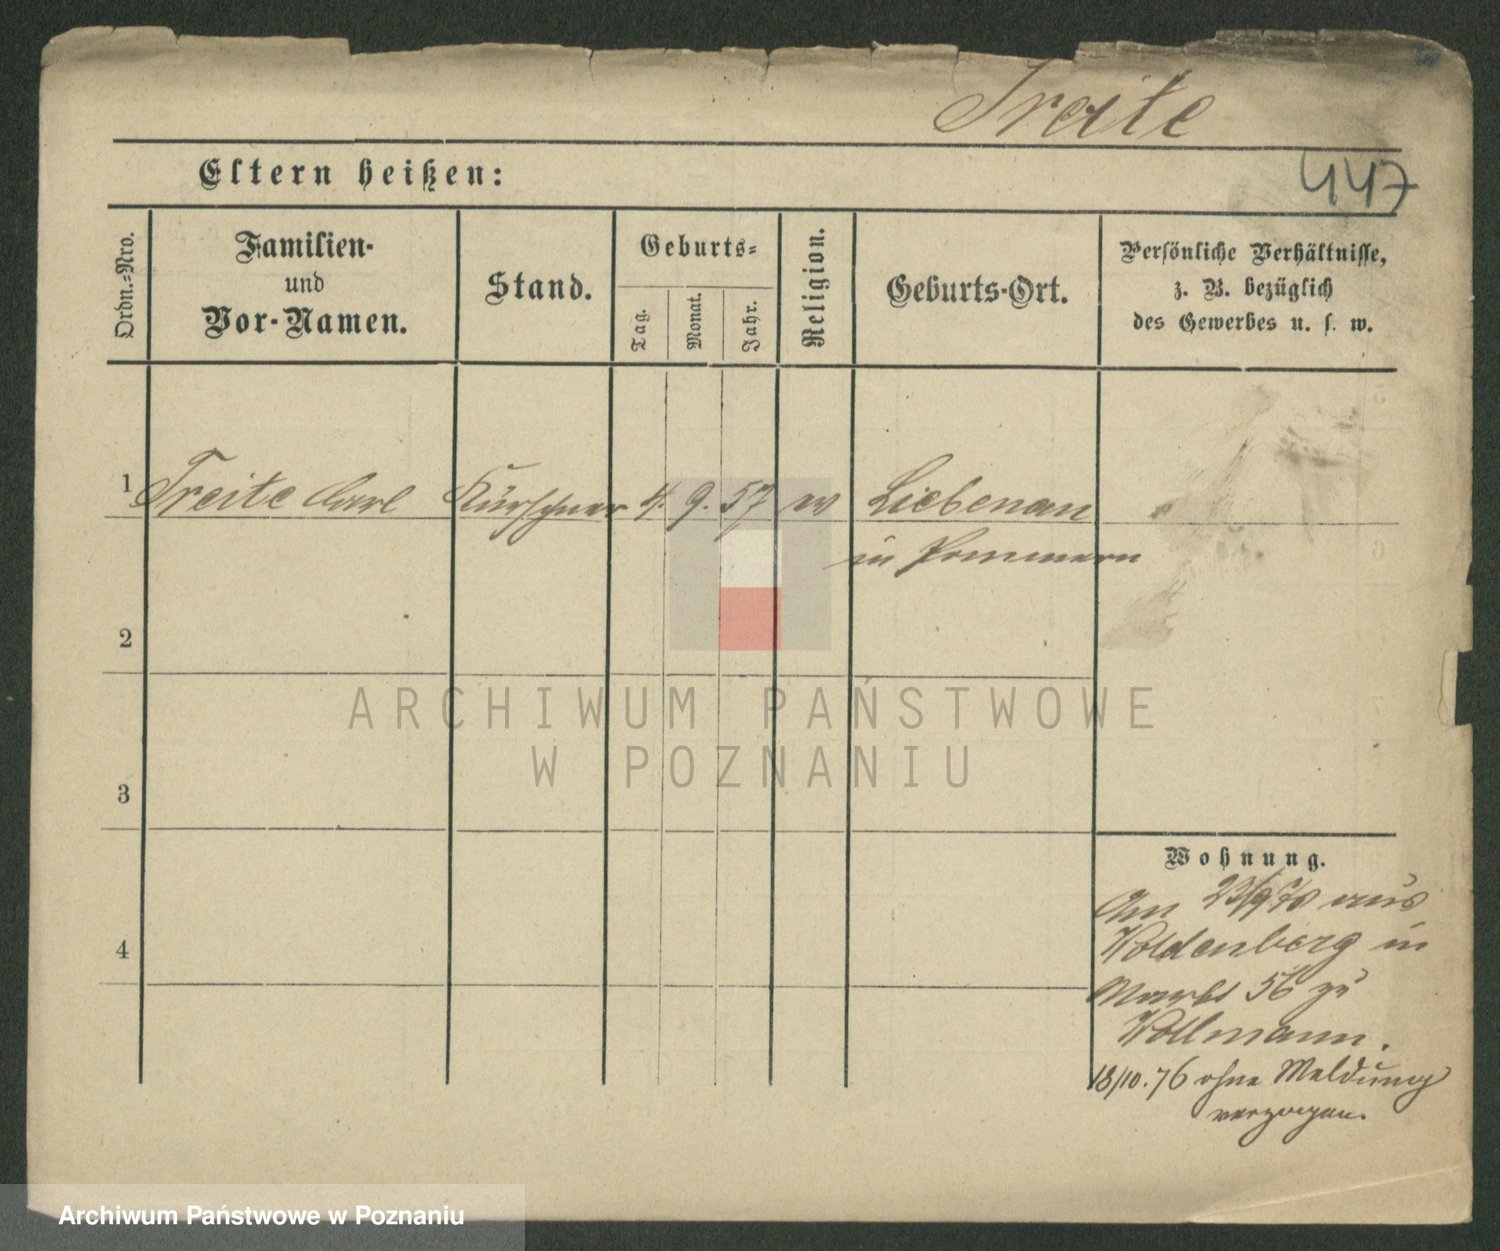 Treite
447
Eltern heißen:
Ordn.-Nro.
Familien-
und
Vor-Namen.
Stand.
Geburts-
Tag.
Monat.
Jahr.
Religion.
Geburts-Ort.
Persönliche Verhältnisse,
z. B. bezüglich
des Gewerbes u. s. w.
1 Treite Carl Kürschner 4. 9. 57 ev Liebenau
in Pommern
2
3
4
Wohnung.
Am 23/9 76 aus
Woldenberg in
Markt 56 zu
Wollmann.
18/10. 76 ohne Meldung
verzogen.
ARCHIWUM PAŃSTWOWE
W POZNANIU
Archiwum Państwowe w Poznaniu